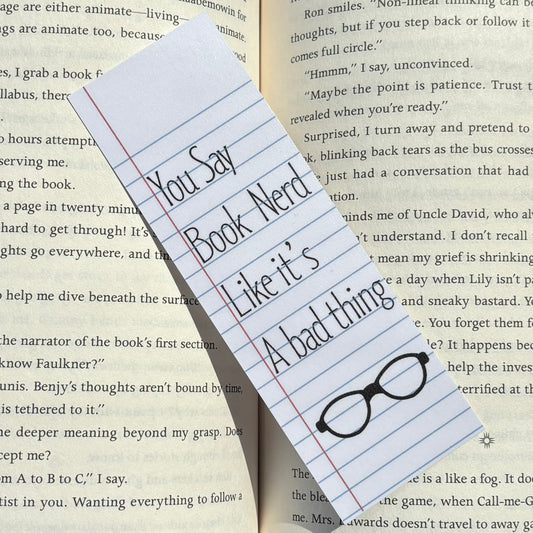 age are either animate—living—
gs are animate too, because
es, I grab a book
llabus, there
o hours attempti
serving me.
ng the book.
a page in twenty minu
hard to get through! It's
ghts go everywhere, and
o help me dive beneath the surface
the narrator of the book's first section.
know Faulkner?"
unis. Benjy's thoughts aren't bound by time,
is tethered to it."
ne deeper meaning beyond my grasp. Does
cept me?
om A to B to C," I say.
tist in you. Wanting everything to follow a
You Say
Book Nerd
Like it's
A bad thing
Ron smiles. "Non-linear thinking can be
thoughts, but if you step back or follow it
comes full circle."
"Hmmm," I say, unconvinced.
"Maybe the point is patience. Trust t
revealed when you're ready."
Surprised, I turn away and pretend to
k, blinking back tears as the bus crosses
just had a conversation that had
tion.
minds me of Uncle David, who alw
't understand. I don't recall
t mean my grief is shrinking
e a day when Lily isn't pa
and sneaky bastard. Yo
e. You forget them fo
le? It happens bec
help the inves
terrified at th
The
is like a fog. It does
the ble
the game, when Call-me-G
me. Mrs. Edwards doesn't travel to away ga